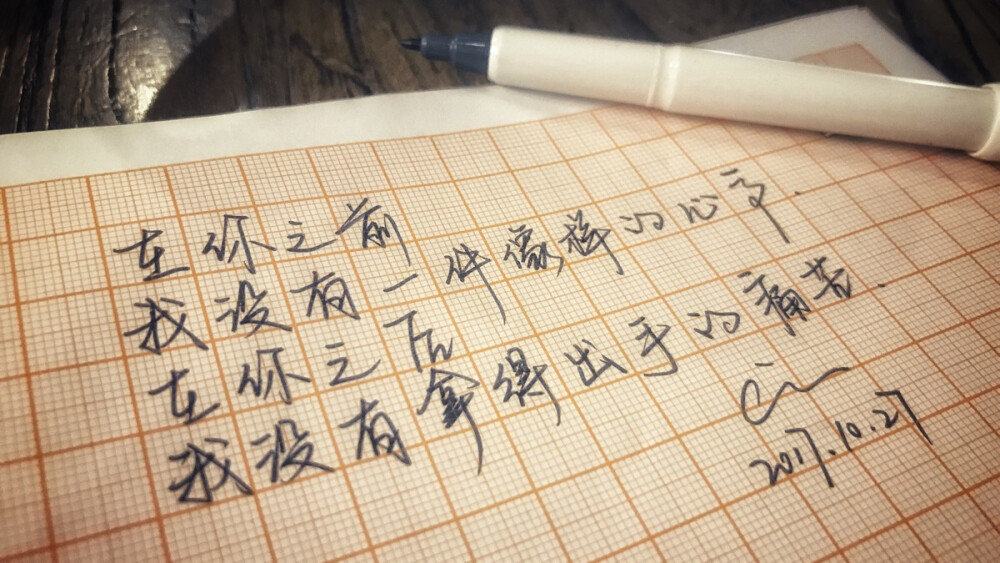 在你之前
我没有一件像样的心事.
在你之后
我没有拿得出手的痛苦.
2017.10.27